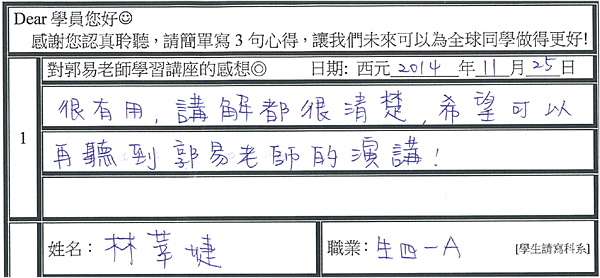 Dear 學員您好☺
感謝您認真聆聽，請簡單寫 3 句心得，讓我們未來可以為全球同學做得更好!
對郭易老師學習講座的感想◎ 日期: 西元 2014 年 11 月 25 日
1
很有用，講解都很清楚，希望可以
再聽到郭易老師的演講！
姓名： 林莘婕 職業： 生四一A [學生請寫科系]